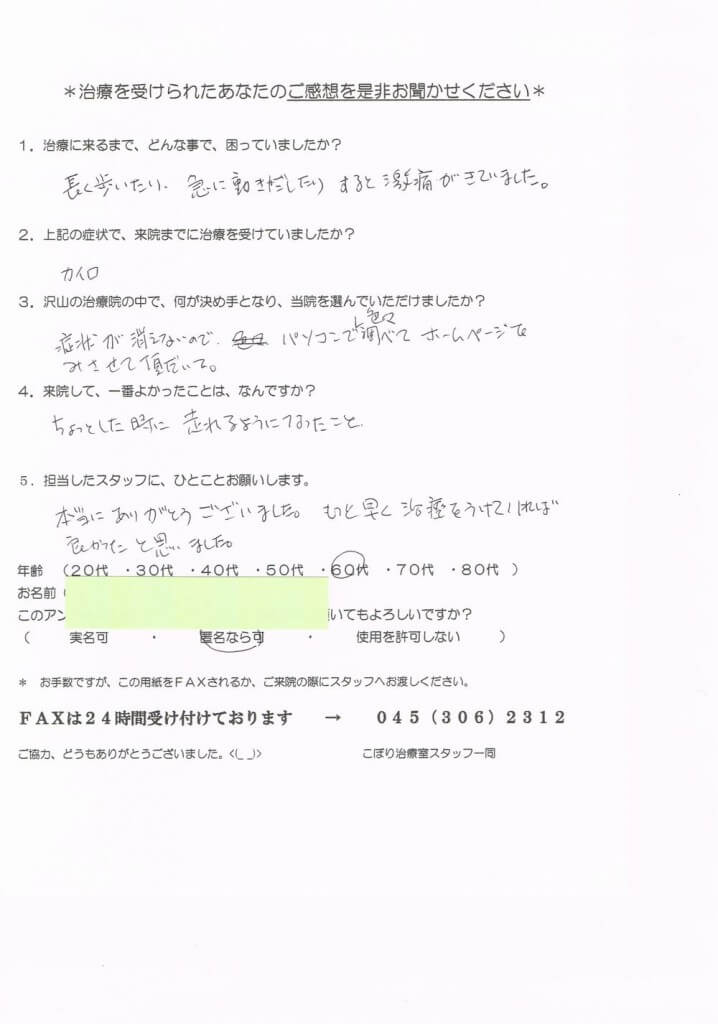 ＊治療を受けられたあなたのご感想を是非お聞かせください＊
１．治療に来るまで、どんな事で、困っていましたか？
長く歩いたり、急に動きだしたりすると激痛がきていました。
２．上記の症状で、来院までに治療を受けていましたか？
カイロ
３．沢山の治療院の中で、何が決め手となり、当院を選んでいただけましたか？
症状が消えないので、パソコンで色々調べてホームページを
みさせて頂だいて。
４．来院して、一番よかったことは、なんですか？
ちょっとした時に走れるようになったこと
５．担当したスタッフに、ひとことお願いします。
本当にありがとうございました。もっと早く治療をうけていれば
良かったと思いました。
年齢　（２０代　・３０代　・４０代　・５０代　・６０代　・７０代　・８０代　）
お名前（
このアン　頂いてもよろしいですか？
（　実名可　・　匿名なら可　・　使用を許可しない　）
＊　お手数ですが、この用紙をＦＡＸされるか、ご来院の際にスタッフへお渡しください。
ＦＡＸは２４時間受け付けております　→　０４５（３０６）２３１２
ご協力、どうもありがとうございました。<(_ _)>　こぼり治療室スタッフ一同